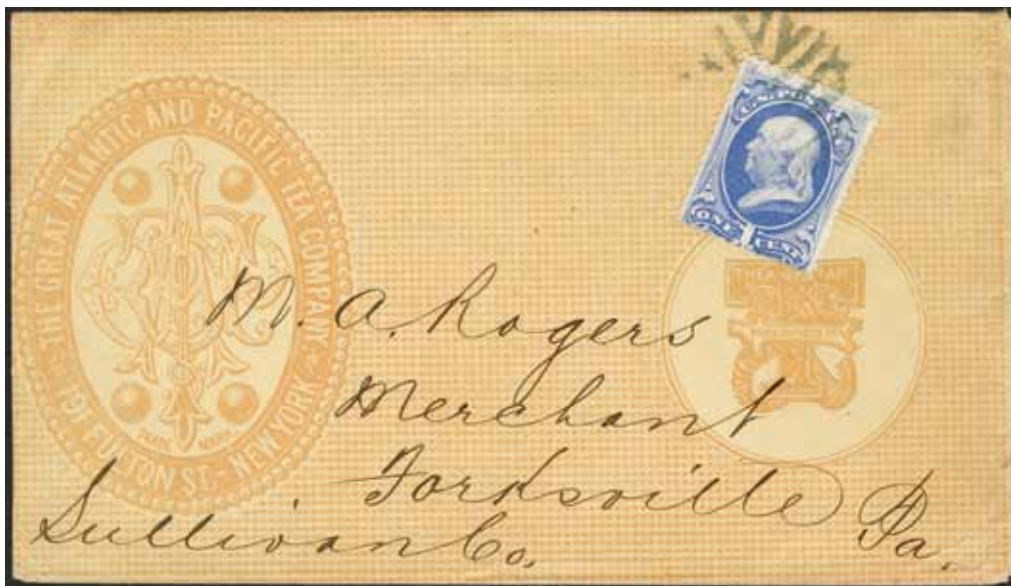 THE GREAT ATLANTIC AND PACIFIC TEA COMPANY
NEW YORK
ONE CENT
M. A. Rogers
Merchant
Forksville
Sullivan Co.
Pa.